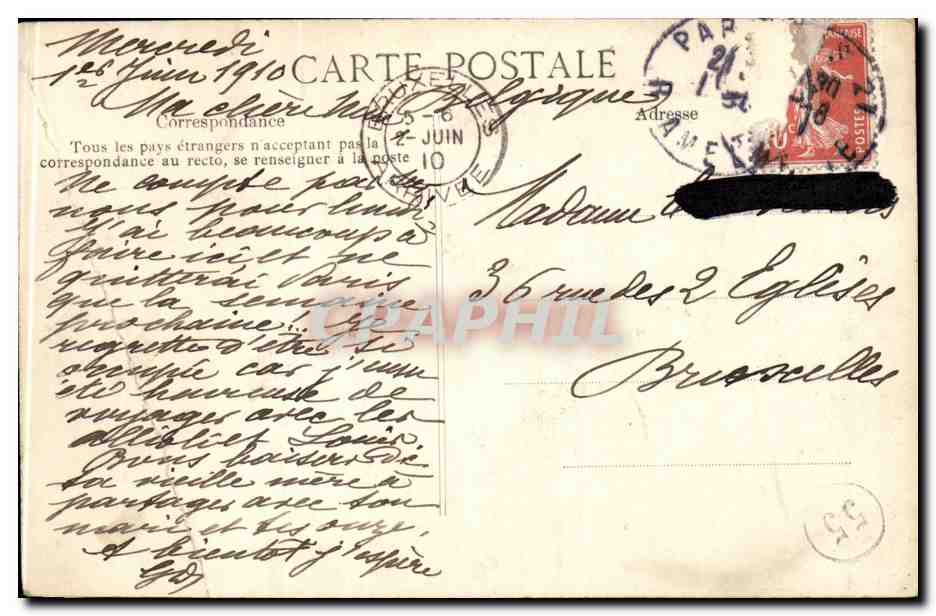 Mercredi
1er Juin 1910
CARTE POSTALE
Ma chère
Belgique
Correspondance
Adresse
Tous les pays étrangers n'acceptant pas la
correspondance au recto, se renseigner à la poste
BRUXELLES
5-6
2-JUIN
10
ARRIVEE
PAR
POSTES
Ne compte pas
nous pour lundi
j'ai beaucoup à
faire ici et ne
quitterai Paris
que la semaine
prochaine. Je
regrette d'être si
occupée car j'aurai
été heureuse de
voyager avec les
et Louis.
Bons baisers de
ta vieille mère à
partager avec ton
mari et tes onze.
A bientôt j'espère
GD
Madame
36 rue des 2 Eglises
Bruxelles
CPAPHIL
55